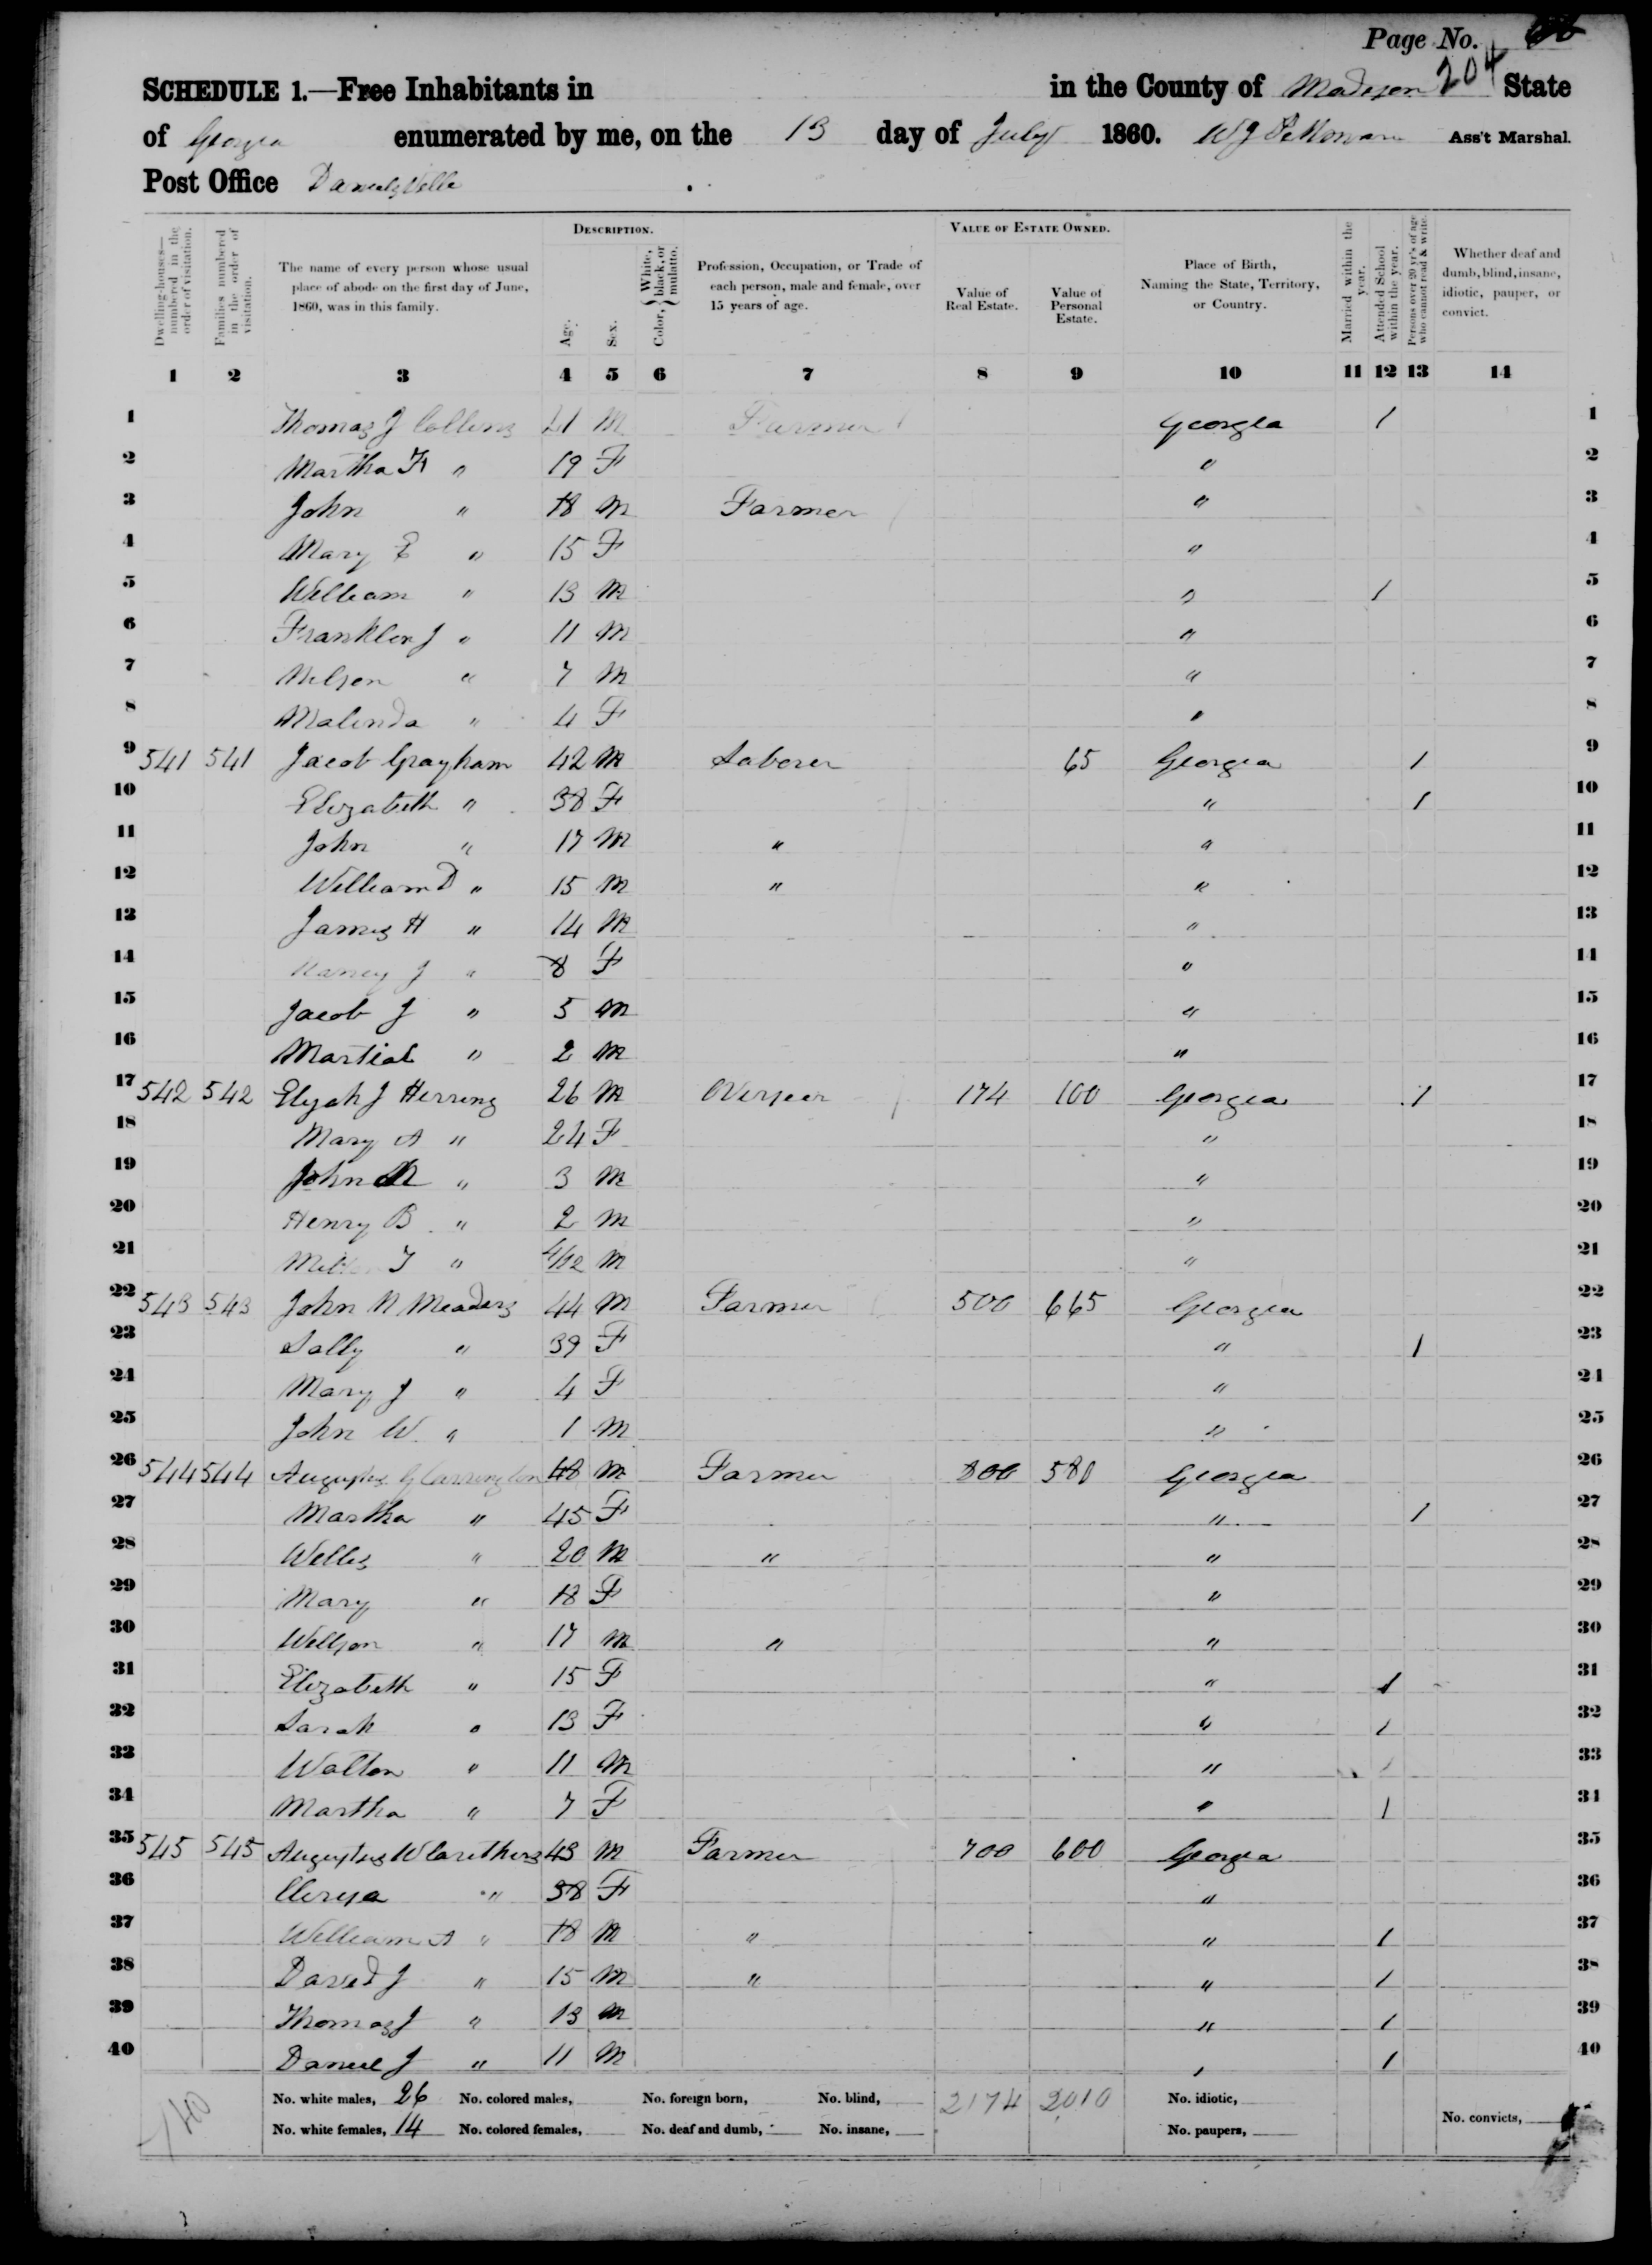 Page No. 66
204
SCHEDULE 1.—Free Inhabitants in in the County of Madison State
of Georgia enumerated by me, on the 13 day of July 1860. W J Ass't Marshal.
Post Office Danielsville
DESCRIPTION. VALUE OF ESTATE OWNED.
Dwelling-houses—numbered in the order of visitation. Families numbered in the order of visitation. The name of every person whose usual place of abode on the first day of June, 1860, was in this family. Age. Sex. Color, { White, black, or mulatto. Profession, Occupation, or Trade of each person, male and female, over 15 years of age. Value of Real Estate. Value of Personal Estate. Place of Birth, Naming the State, Territory, or Country. Married within the year. Attended School within the year. Persons over 20 yr's of age who cannot read & write. Whether deaf and dumb, blind, insane, idiotic, pauper, or convict.
1 2 3 4 5 6 7 8 9 10 11 12 13 14
1 Thomas J Collins 21 M Farmer Georgia / 1
2 Martha F " 19 F " 2
3 John " 18 M Farmer " 3
4 Mary E " 15 F " 4
5 William " 13 M " / 5
6 Franklin J " 11 M " 6
7 Nelson " 7 M " 7
8 Malinda " 4 F " 8
9 541 541 Jacob Grayham 42 M Laborer 65 Georgia / 9
10 Elizabeth " 38 F " / 10
11 John " 17 M " " 11
12 William D " 15 M " " 12
13 James H " 14 M " 13
14 Nancy J " 8 F " 14
15 Jacob J " 5 M " 15
16 Martial " 2 M " 16
17 542 542 Elijah J Herring 26 M Overseer 174 100 Georgia / 17
18 Mary A " 24 F " 18
19 John M " 3 M " 19
20 Henry B " 2 M " 20
21 T " 4/12 M " 21
22 543 543 John N Meaders 44 M Farmer 500 665 Georgia 22
23 Sally " 39 F " / 23
24 Mary J " 4 F " 24
25 John W " 1 M " 25
26 544 544 Augustus G Carrington 48 M Farmer 800 580 Georgia 26
27 Martha " 45 F " / 27
28 Willis " 20 M " " 28
29 Mary " 18 F " 29
30 Wilson " 17 M " " 30
31 Elizabeth " 15 F " / 31
32 Sarah " 13 F " / 32
33 Walton " 11 M " / 33
34 Martha " 7 F " / 34
35 545 545 Augustus W Carithers 43 M Farmer 700 600 Georgia 35
36 " 38 F " 36
37 William A " 18 M " " / 37
38 David J " 15 M " " / 38
39 Thomas J " 13 M " / 39
40 Daniel J " 11 M " / 40
140 No. white males, 26 No. colored males, No. foreign born, No. blind, 2174 2010 No. idiotic,
No. white females, 14 No. colored females, No. deaf and dumb, No. insane, No. paupers, No. convicts,